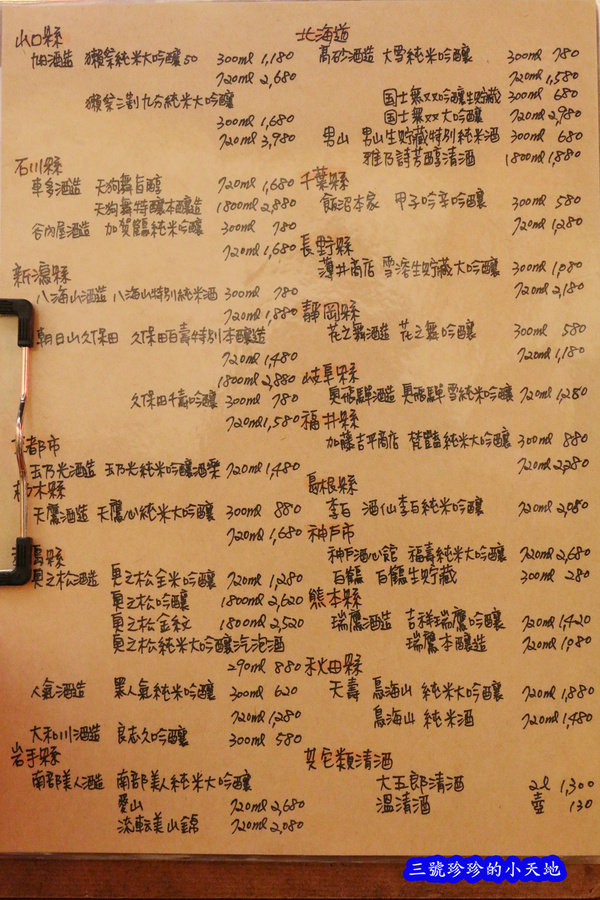 山口縣
旭酒造 獺祭純米大吟釀50 300ml 1,180
720ml 2,680
獺祭三割九分純米大吟釀
300ml 1,680
720ml 3,980
石川縣
車多酒造 天狗舞旨醇 720ml 1,680
天狗舞特釀本釀造 1800ml 2,880
谷內屋酒造 加賀鶴純米吟釀 300ml 780
720ml 1,680
新瀉縣
八海山酒造 八海山特別純米酒 300ml 780
720ml 1,880
朝日山久保田 久保田百壽特別本釀造
720ml 1,480
1800ml 2,880
久保田千壽吟釀 300ml 780
720ml 1,580
都市
玉乃光酒造 玉乃光純米吟釀酒槳 720ml 1,480
木縣
天鷹酒造 天鷹心純米大吟釀 300ml 880
720ml 1,680
縣
奧之松酒造 奧之松全米吟釀 720ml 1,280
奧之松吟釀 1800ml 2,620
奧之松金紋 1800ml 2,520
奧之松純米大吟釀汽泡酒
290ml 880
人氣酒造 黑人氣純米吟釀 300ml 620
720ml 1,280
大和川酒造 良志久吟釀 300ml 580
岩手縣
南部美人酒造 南部美人純米大吟釀
愛山 720ml 2,680
流転美山錦 720ml 2,080
北海道
高砂酒造 大雪純米吟釀 300ml 780
720ml 1,580
国士無双吟釀生貯藏 300ml 680
国士無双大吟釀 720ml 2,980
男山 男山生貯藏特別純米酒 300ml 680
雅乃詩芳醇清酒 1800ml 1,880
千葉縣
飯沼本家 甲子吟辛吟釀 300ml 580
720ml 1,280
長野縣
薄井商店 雪溶生貯藏大吟釀 300ml 1,080
720ml 2,180
靜岡縣
花之舞酒造 花之舞吟釀 300ml 580
720ml 1,180
岐阜縣
奧飛驒酒造 奧飛驒雪純米吟釀 720ml 1,280
福井縣
加藤吉平商店 梵 純米大吟釀 300ml 880
720ml 2,280
島根縣
李白 酒仙李白純米吟釀 720ml 2,080
神戶市
神戶酒心館 福壽純米大吟釀 720ml 2,680
白鶴 白鶴生貯藏 300ml 280
熊本縣
瑞鷹酒造 吉祥瑞鷹吟釀 720ml 1,420
瑞鷹本釀造 720ml 1,980
秋田縣
天壽 鳥海山 純米大吟釀 720ml 1,880
鳥海山 純米酒 720ml 1,480
其它類清酒
大五郎清酒 2l 1,300
溫清酒 壺 130
三號珍珍的小天地